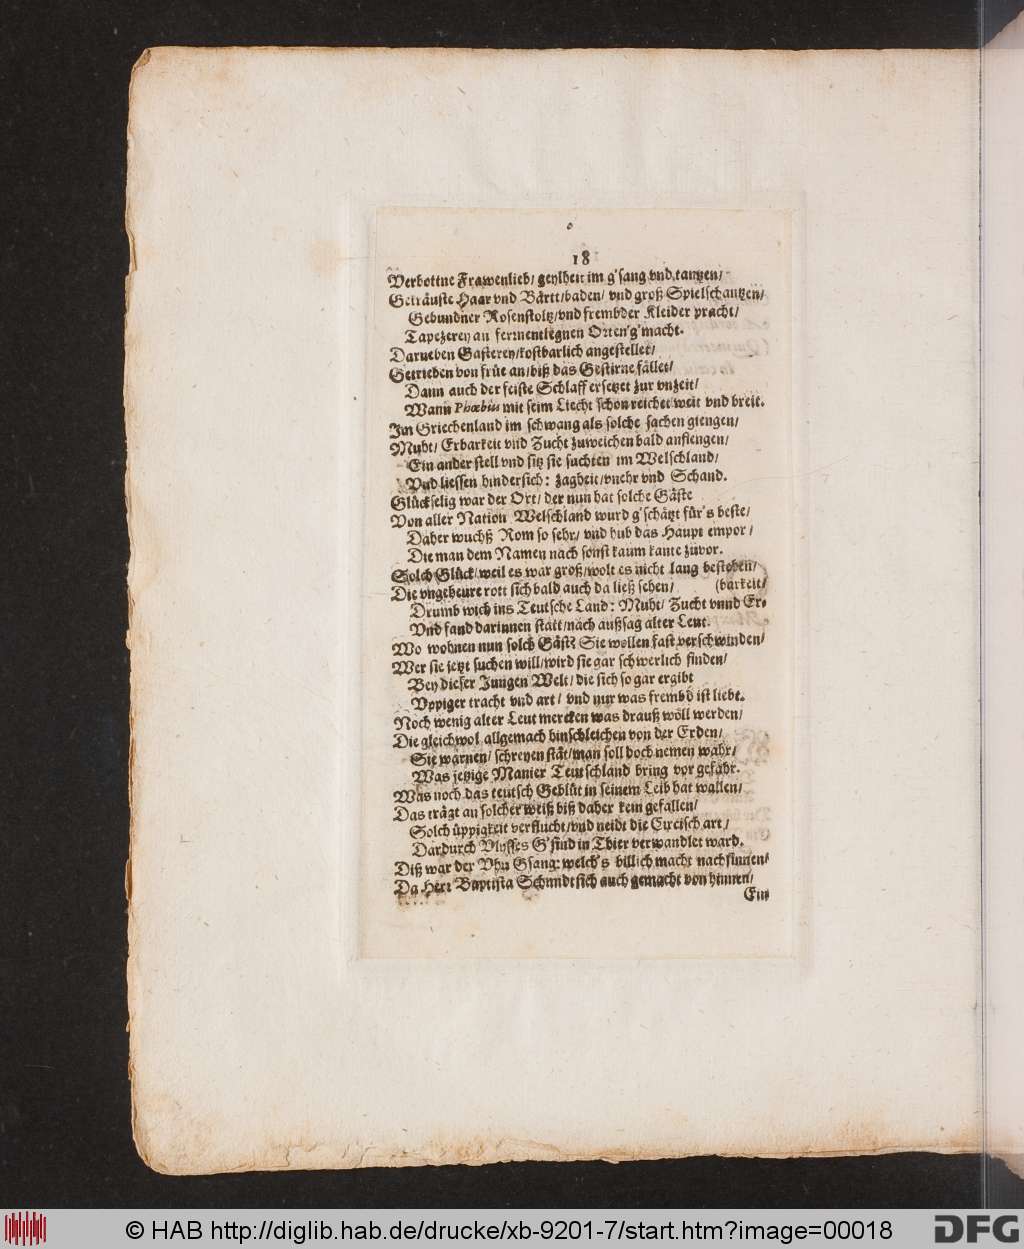 18
Verbottne Frawenlieb/ geylheit im g'sang vnd tantzen/
Geträuste Haar vnd Bärtt/baden/ vnd groß Spielschantzen/
Gebundner Rosenstoltz/vnd frembder Kleider pracht/
Tapezerey an ferrnentlegnen Orten g'macht.
Darneben Gasterey/kostbarlich angestellet/
Getrieben von früe an/biß das Gestirne fället/
Dann auch der feiste Schlaff ersetzet zur vnzeit/
Wann Phœbus mit seim Liecht schon reichet weit vnd breit.
Im Griechenland im schwang als solche sachen giengen/
Muht/ Erbarkeit vnd Zucht zuweichen bald anfiengen/
Ein ander stell vnd sitz sie suchten im Welschland/
Vnd liessen hindersich: zagheit/vnehr vnd Schand.
Glückselig war der Ort/ der nun hat solche Gäste
Von aller Nation Welschland wurd g'schätzt für's beste/
Daher wuchß Rom so sehr/ vnd hub das Haupt empor/
Die man dem Namen nach sonst kaum kante zuvor.
Solch Glück/weil es war groß/wolt es nicht lang bestehen/
Die vngeheure rott sich bald auch da ließ sehen/ (barkeit/
Drumb wich ins Teutsche Land: Muht/ Zucht vnnd Er-
Vnd fand darinnen statt/nach außsag alter Leut.
Wo wohnen nun solch Gäst? Sie wollen fast verschwinden/
Wer sie jetzt suchen will/wird sie gar schwerlich finden/
Bey dieser Jungen Welt/ die sich so gar ergibt
Vppiger tracht vnd art/ vnd nur was frembd ist liebt.
Noch wenig alter Leut mercken was drauß wöll werden/
Die gleichwol allgemach hinschleichen von der Erden/
Sie warnen/ schreyen stät/man soll doch nemen wahr/
Was jetzige Manier Teutschland bring vor gefahr.
Was noch das teutsch Geblüt in seinem Leib hat wallen/
Das trägt an solcher weiß biß daher kein gefallen/
Solch üppigkeit verflucht/vnd neidt die Circisch art/
Dardurch Vlysses G'sind in Thier verwandlet ward.
Diß war der Vhu Gsang: welch's billich macht nachsinnen/
Da Herr Baptista Schmidt sich auch gemacht von hinnen/
Ein
© HAB http://diglib.hab.de/drucke/xb-9201-7/start.htm?image=00018
DFG